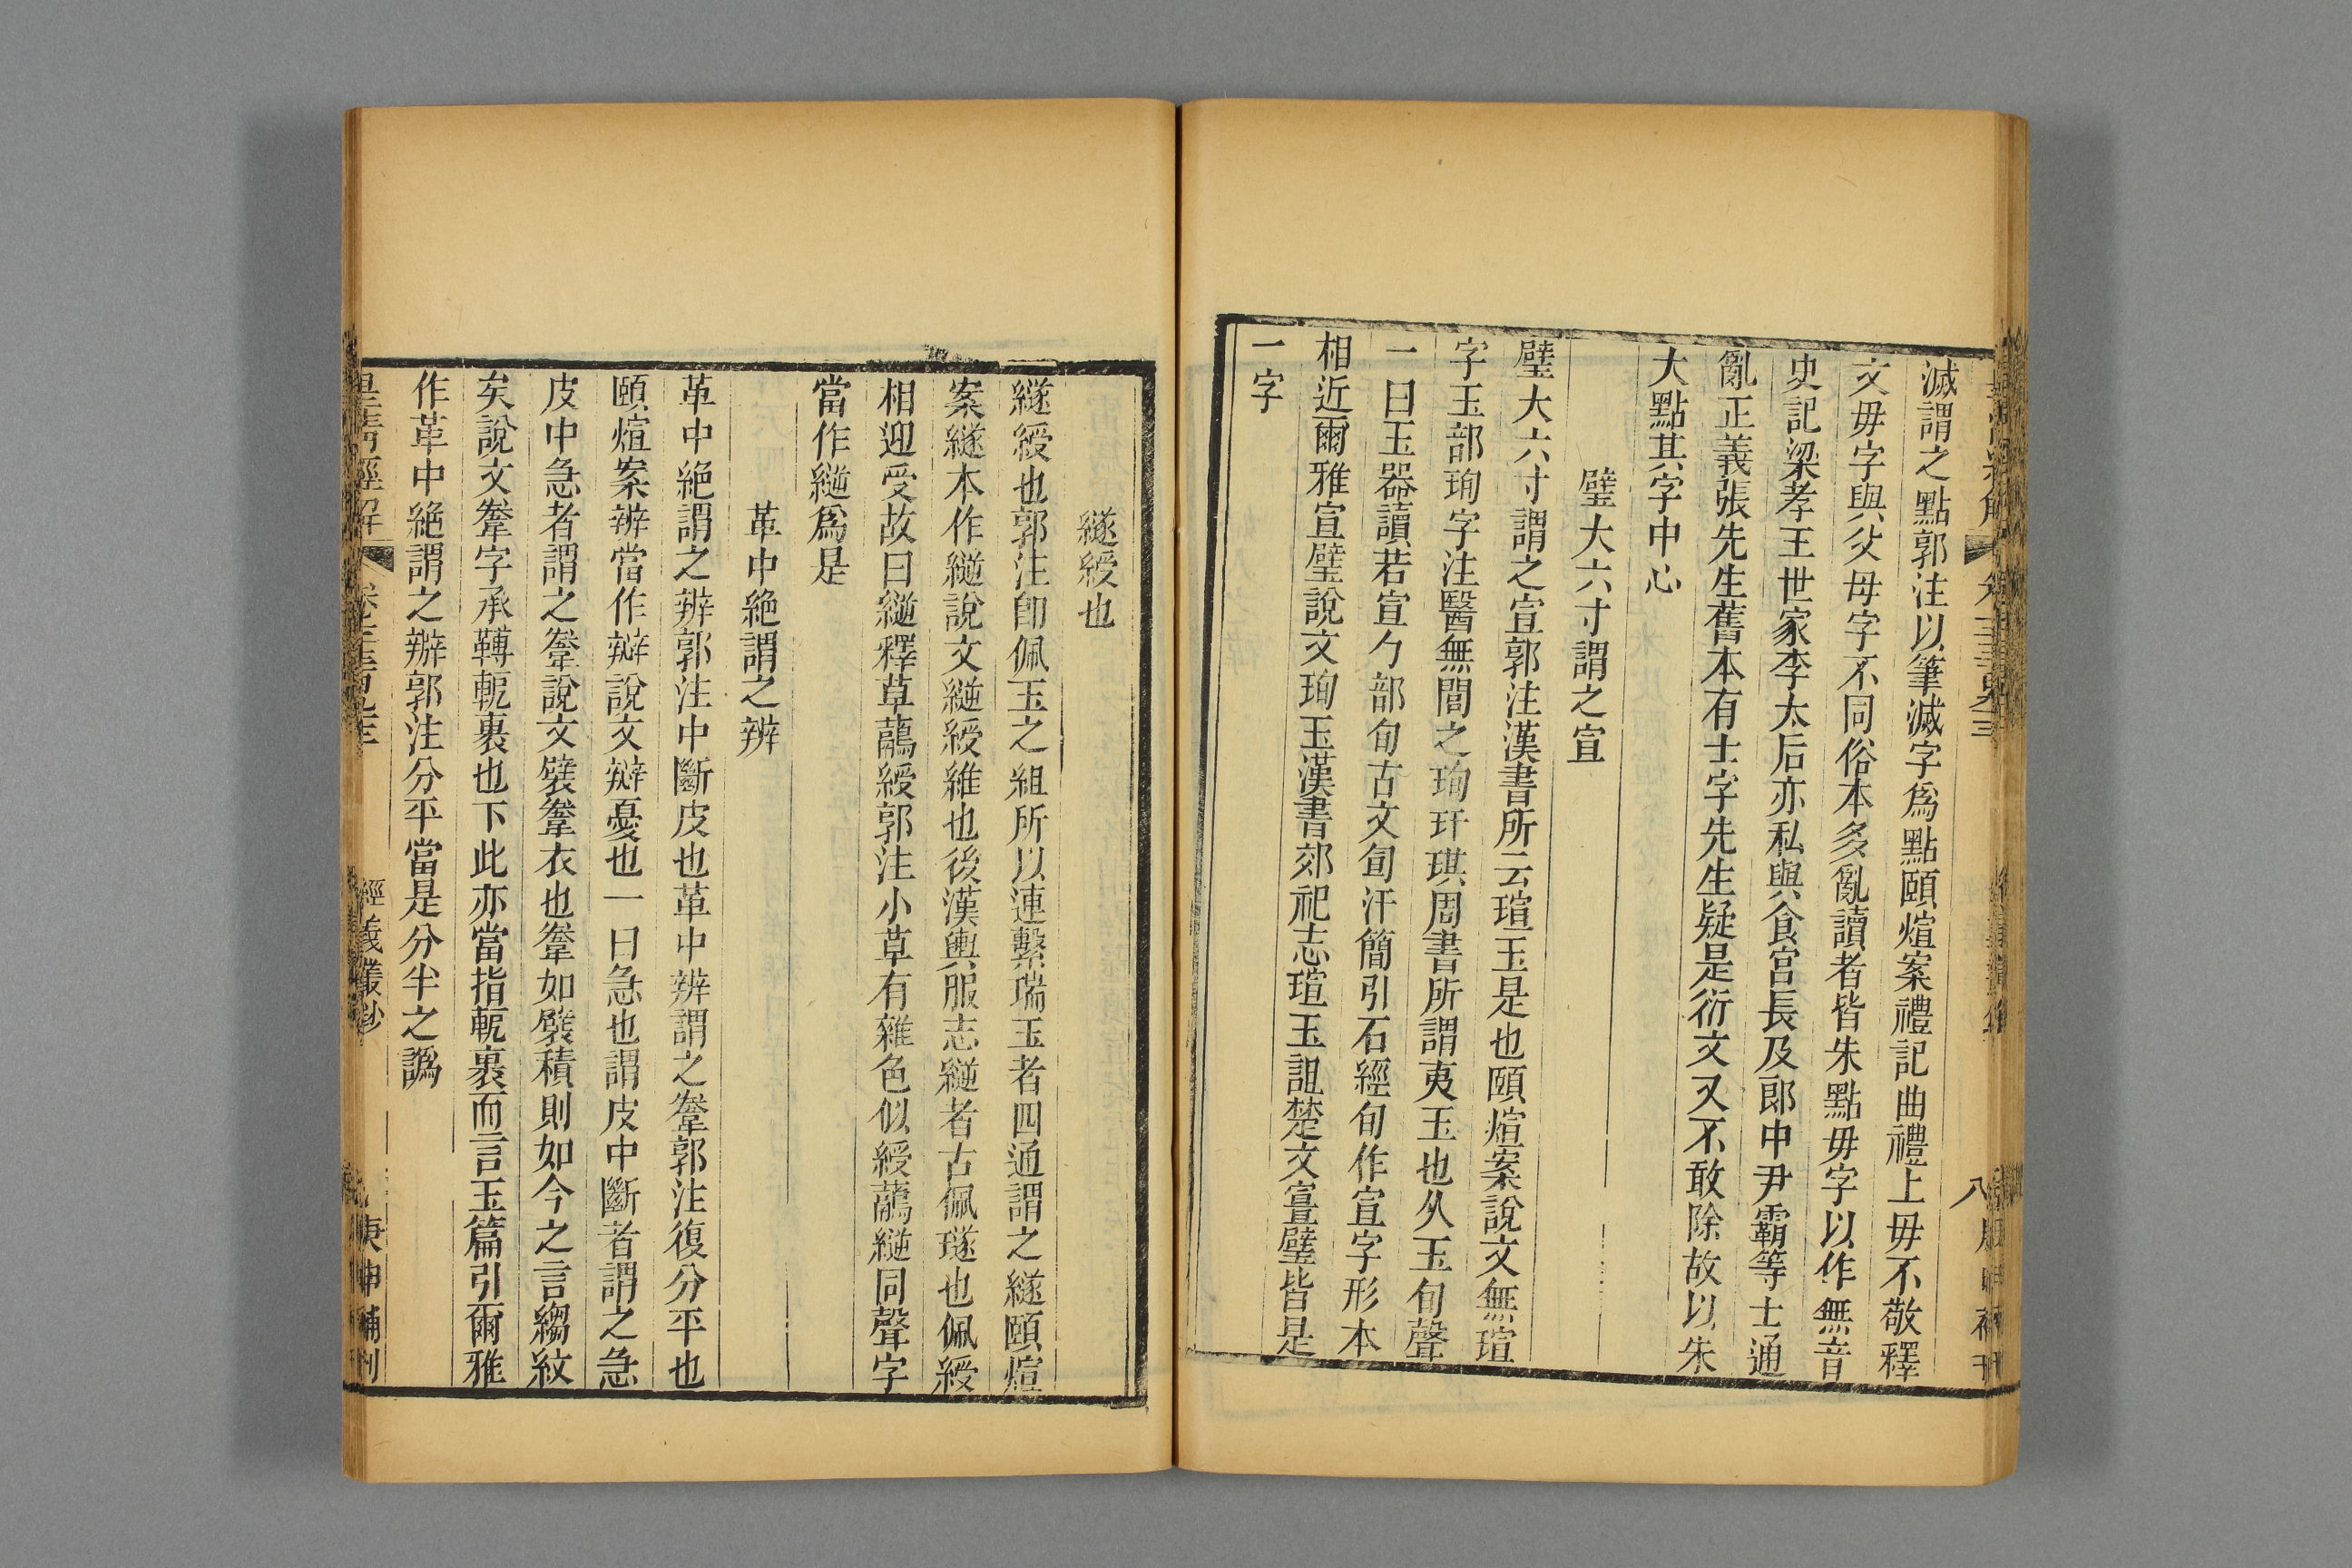 滅謂之點郭注以筆滅字爲點頤煊案禮記曲禮上毋不敬釋
文毋字與父母字不同俗本多亂讀者皆朱點毋字以作無音
史記梁孝王世家李太后亦私與食官長及郎中尹霸等士通
亂正義張先生舊本有士字先生疑是衍文又不敢除故以朱
大點其字中心
璧大六寸謂之宣
璧大六寸謂之宣郭注漢書所云瑄玉是也頤煊案說文無瑄
字玉部珣字注醫無閭之珣玗琪周書所謂夷玉也从玉旬聲
一曰玉器讀若宣勹部旬古文㫬汗簡引石經旬作宣字形本
相近爾雅宣璧說文珣玉漢書郊祀志瑄玉詛楚文宣璧皆是
一字
繸綬也
繸綬也郭注卽佩玉之組所以連繫瑞玉者四通謂之繸頤煊
案繸本作縌說文縌綬維也後漢輿服志縌者古佩璲也佩綬
相迎受故曰縌釋草虉綬郭注小草有雜色似綬虉縌同聲字
當作縌爲是
革中絶謂之辨
革中絶謂之辨郭注中斷皮也革中辨謂之韏郭注復分平也
頤煊案辨當作辯說文辯憂也一曰急也謂皮中斷者謂之急
皮中急者謂之韏說文襞韏衣也韏如襞積則如今之言縐紋
矣說文韏字承䩵軛裹也下此亦當指軛裹而言玉篇引爾雅
作革中絶謂之辦郭注分平當是分半之譌
皇淸經解
經義叢鈔
八
庚申補刊